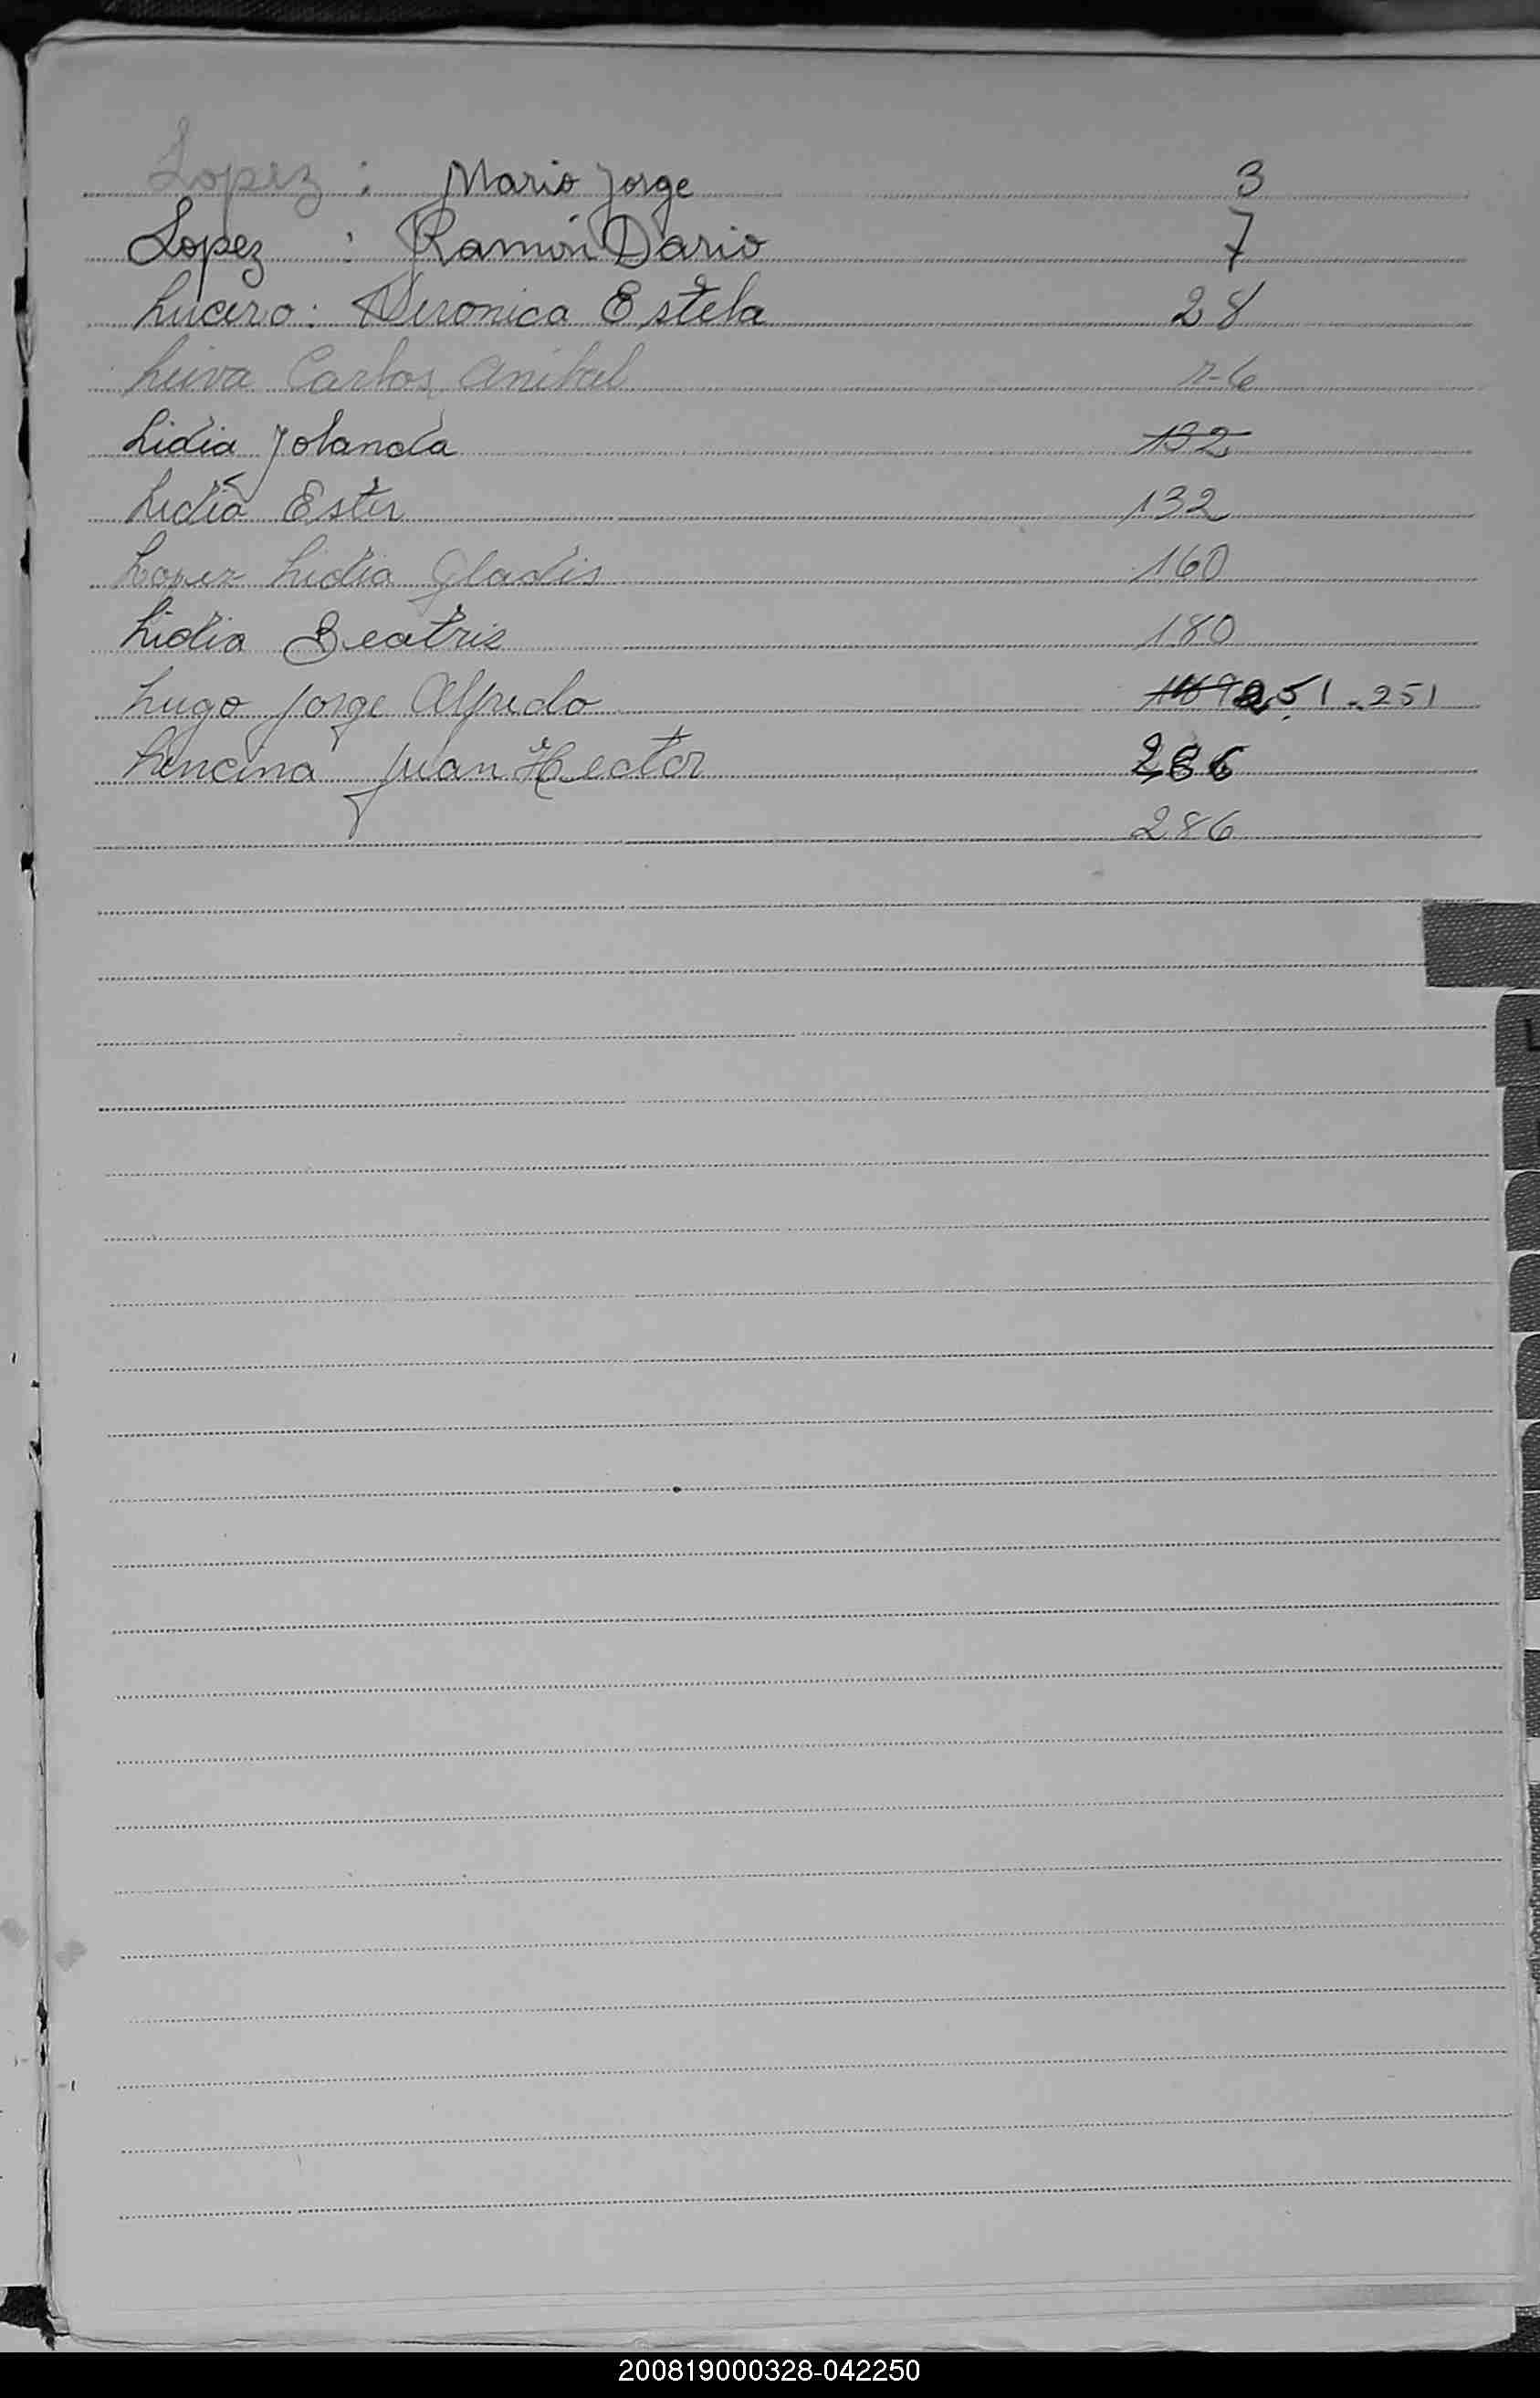 Lopez : Mario Jorge 3
Lopez : Ramón Dario 7
Lucero : Veronica Estela 28
Leiva Carlos Anibal
Lidia Jolanda 132
Lidia Ester 132
Lopez Lidia Gladis 160
Lidia Beatris 180
Lugo Jorge Alfredo 251 - 251
Lencina Juan Hector 286
286
L
200819000328-042250